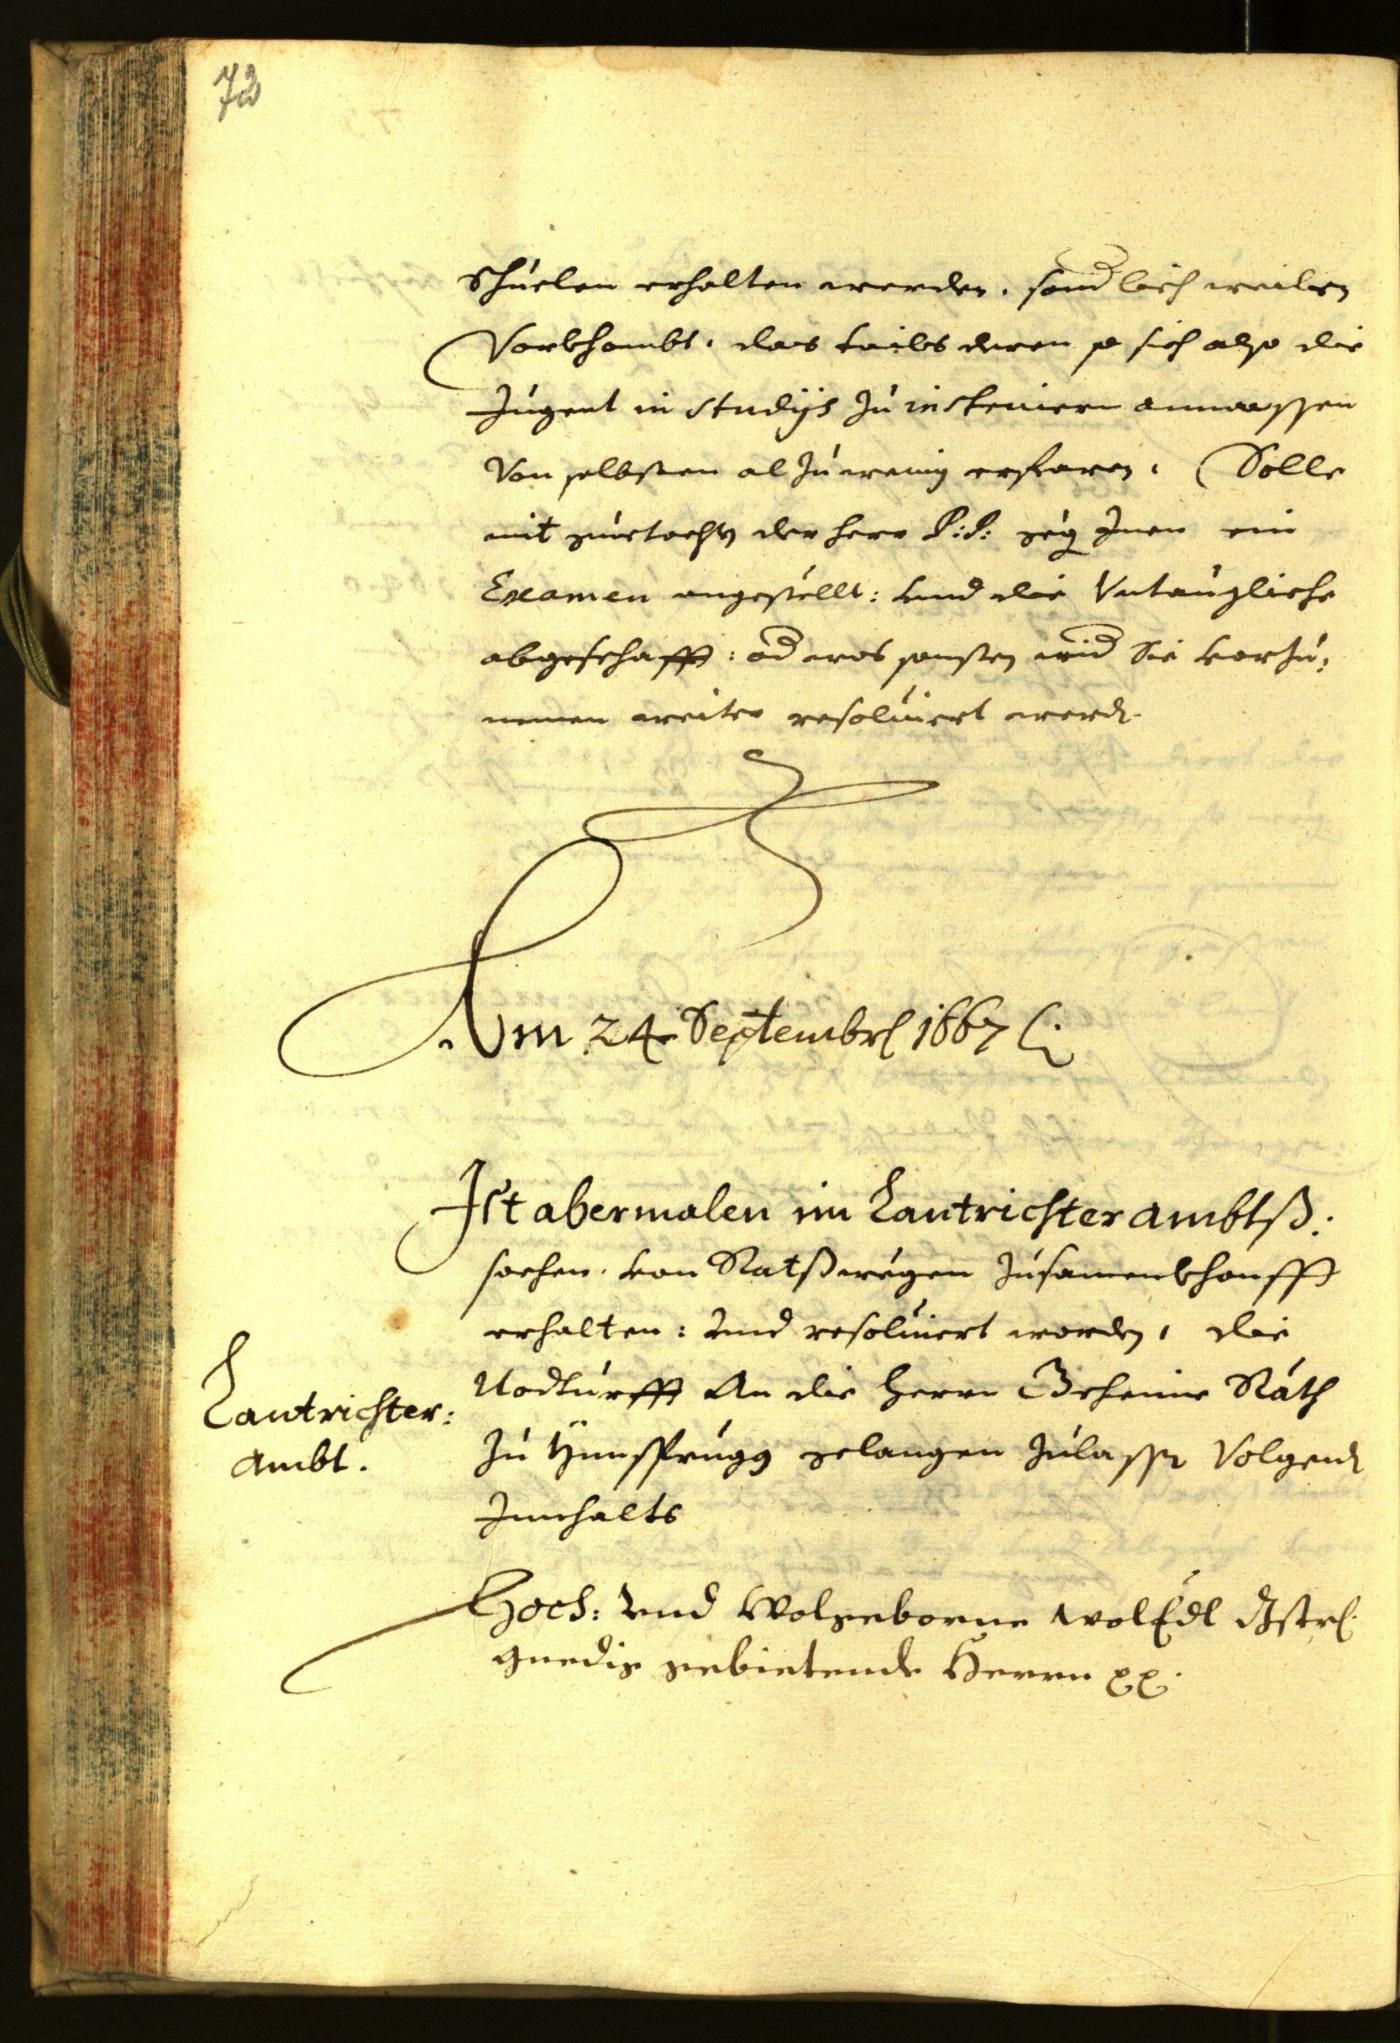 72
Schuelen erhalten werden. sonderlich weilen
Vorkhombt, das tails deren so sich also die
Jugent in studijs zu instruiern anmassen
Von selbsten al zu wenig erfaren, Solle
mit guetachten der herr P:P: Inen ein
Examen angestellt: und die Untaugliche
abgeschafft: od was sonsten wid Sie vorzu:
nemen weiter resoluiert werd.
Am 24 Septembr 1667
Ist abermalen im Lantrichter ambtß:
sachen von Ratß wegen Zusamenkhonfft
erhalten: und resoluiert worden, die
Nodturfft An die herrn Geheime Räth
Zu Ynnsprugg gelangen Zulassen Volgend
Innhalts
Lantrichter:
Ambt.
Hoch: und Wolgeborne wolEdl Gstr
gnedig gebietende Herrn xx.